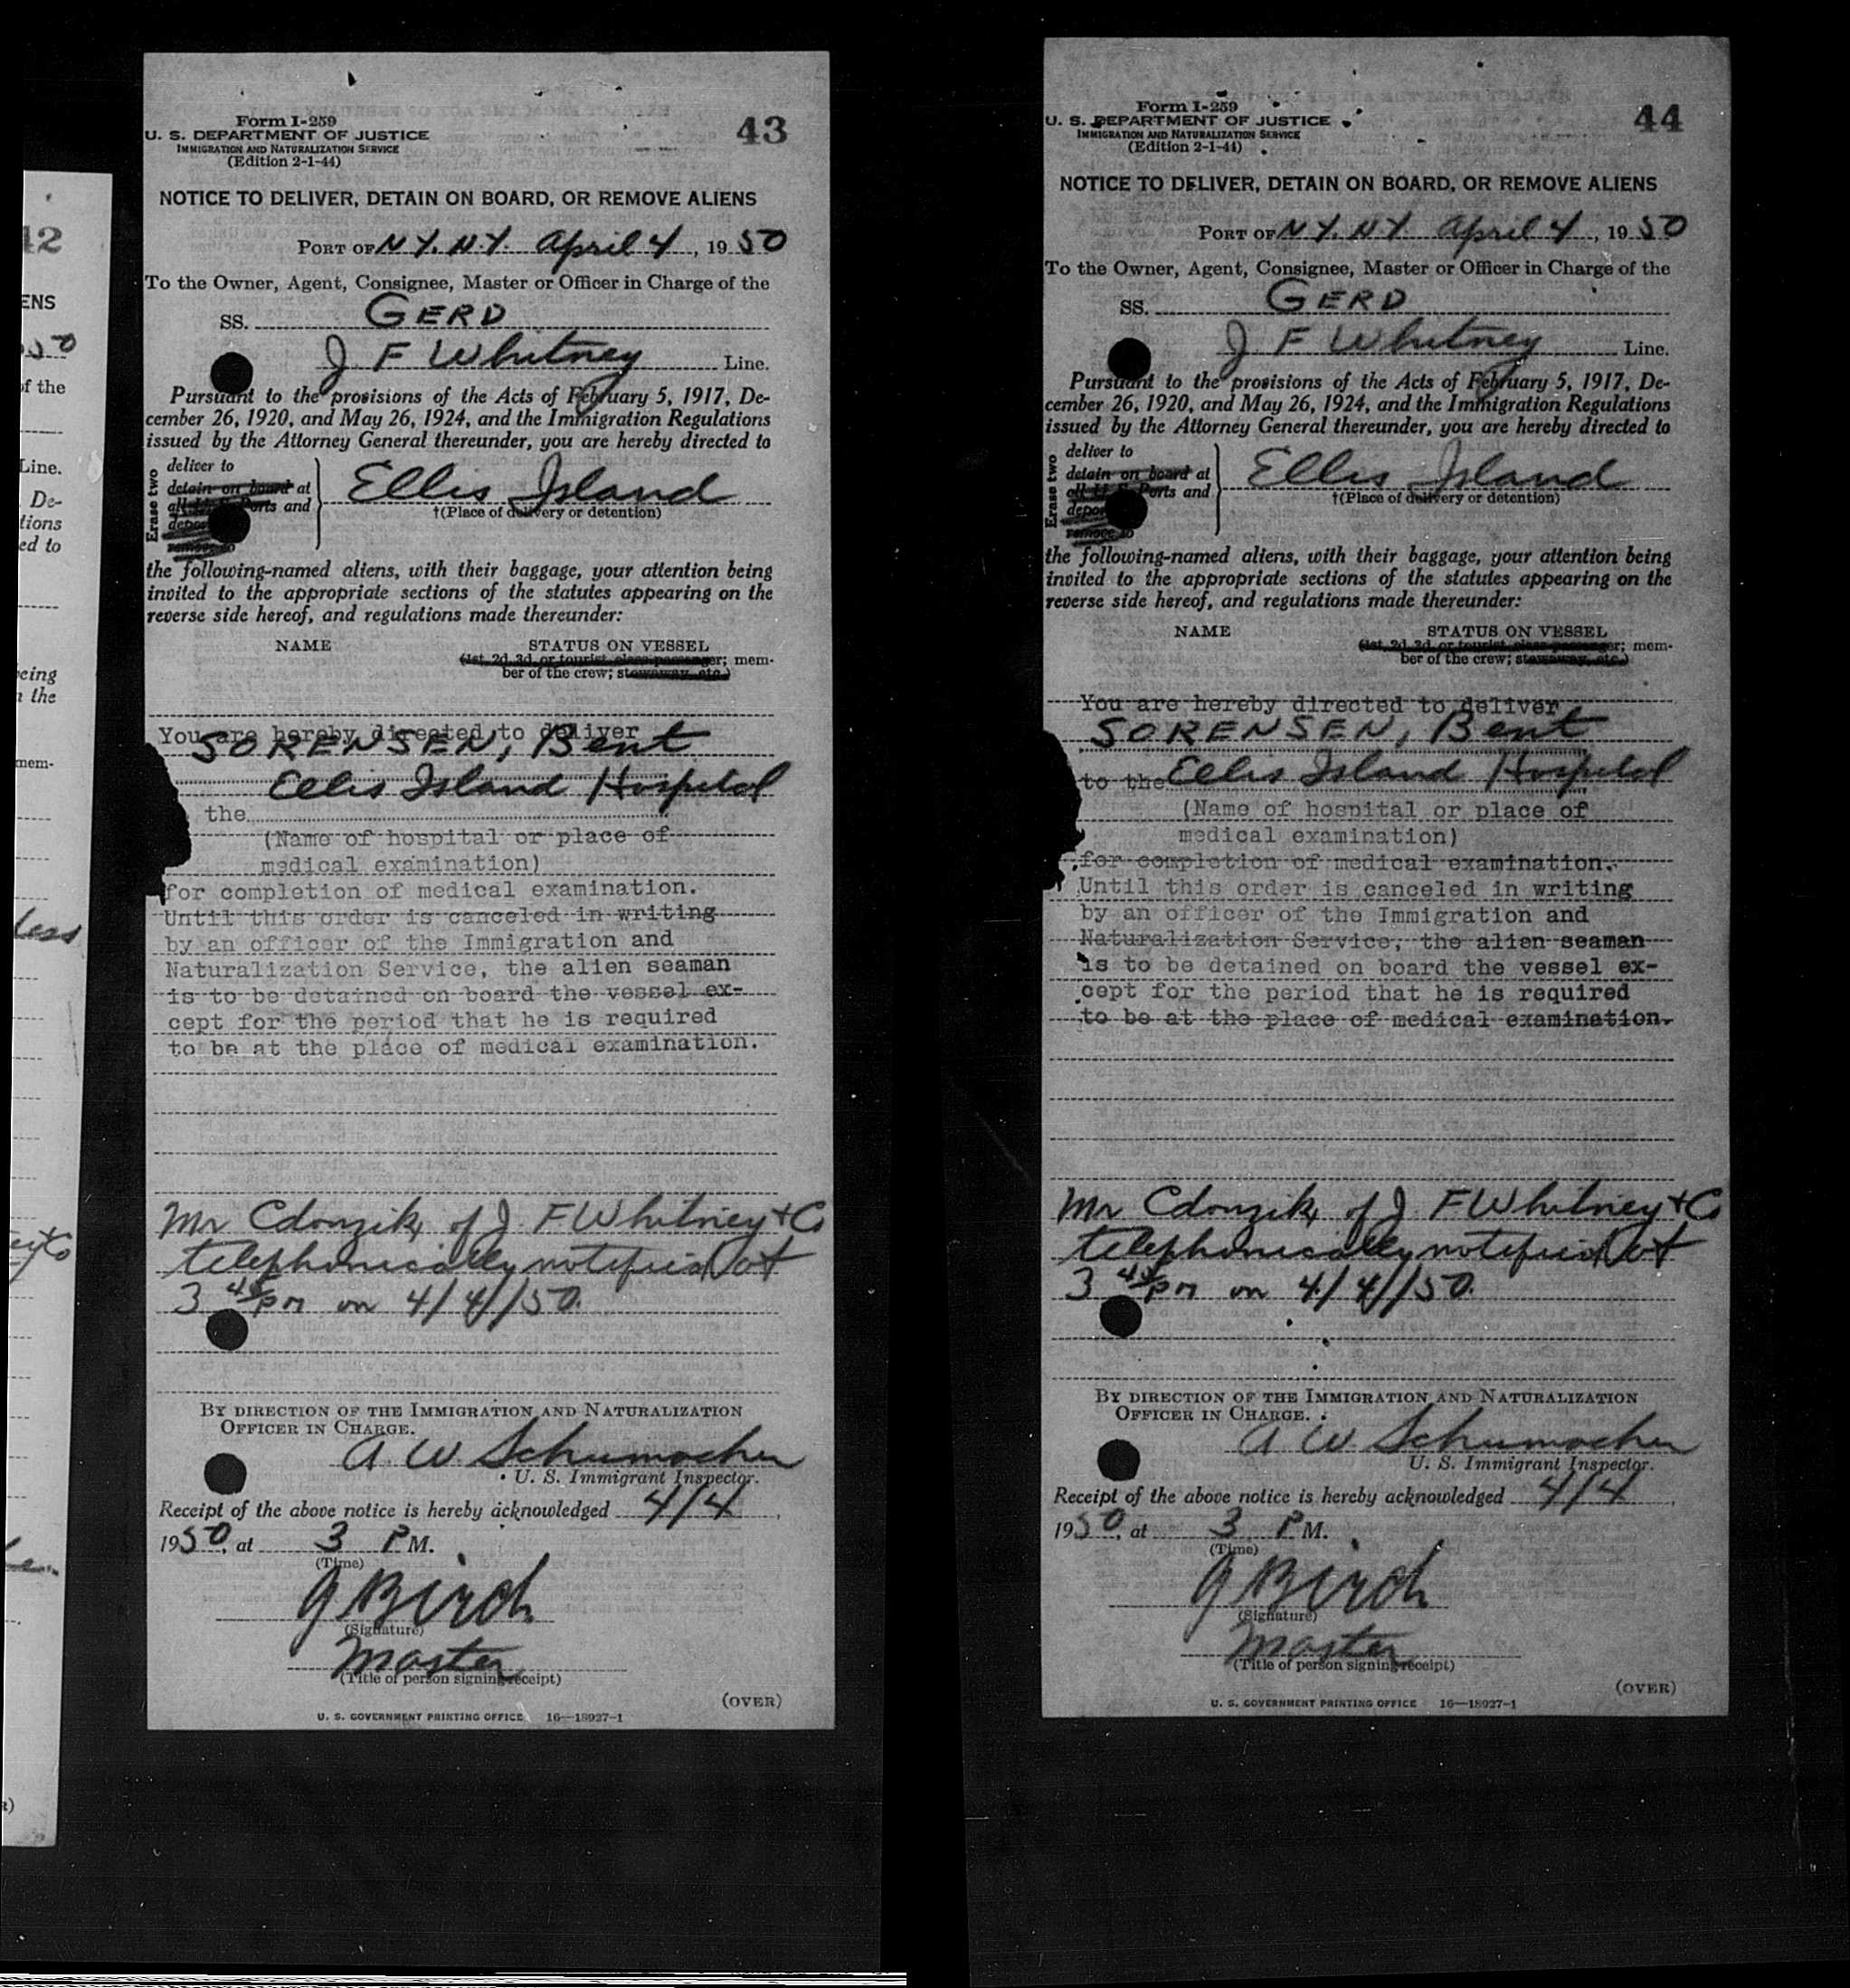 12
ENS
of the
Line.
De-
tions
ed to
eing
n the
mem-
less
43
Form I-259
U. S. DEPARTMENT OF JUSTICE
IMMIGRATION AND NATURALIZATION SERVICE
(Edition 2-1-44)
NOTICE TO DELIVER, DETAIN ON BOARD, OR REMOVE ALIENS
PORT OF N.Y. N.Y. April 4, 1950
To the Owner, Agent, Consignee, Master or Officer in Charge of the
SS. GERD
J F Whitney Line.
Pursuant to the provisions of the Acts of February 5, 1917, De-
cember 26, 1920, and May 26, 1924, and the Immigration Regulations
issued by the Attorney General thereunder, you are hereby directed to
Erase two
deliver to
detain on board at
all U. S. Ports and
remove to
Ellis Island
†(Place of delivery or detention)
the following-named aliens, with their baggage, your attention being
invited to the appropriate sections of the statutes appearing on the
reverse side hereof, and regulations made thereunder:
NAME STATUS ON VESSEL
(1st, 2d, 3d, or tourist class passenger; mem-
ber of the crew; stowaway, etc.)
You are hereby directed to deliver
SORENSEN, Bent
Ellis Island Hospital
the
(Name of hospital or place of
medical examination)
for completion of medical examination.
Until this order is canceled in writing
by an officer of the Immigration and
Naturalization Service, the alien seaman
is to be detained on board the vessel ex-
cept for the period that he is required
to be at the place of medical examination.
Mr Cdonzik of J. F Whitney + Co
telephonically notified at
3 45 pm on 4/4/50.
BY DIRECTION OF THE IMMIGRATION AND NATURALIZATION
OFFICER IN CHARGE.
A. W. Schumacher
U. S. Immigrant Inspector.
Receipt of the above notice is hereby acknowledged 4/4,
1950, at 3 P M.
(Time)
G Birch
(Signature)
Master
(Title of person signing receipt)
(OVER)
U. S. GOVERNMENT PRINTING OFFICE 16—18927-1
44
Form I-259
U. S. DEPARTMENT OF JUSTICE
IMMIGRATION AND NATURALIZATION SERVICE
(Edition 2-1-44)
NOTICE TO DELIVER, DETAIN ON BOARD, OR REMOVE ALIENS
PORT OF N.Y. N.Y. April 4, 1950
To the Owner, Agent, Consignee, Master or Officer in Charge of the
SS. GERD
J F Whitney Line.
Pursuant to the provisions of the Acts of February 5, 1917, De-
cember 26, 1920, and May 26, 1924, and the Immigration Regulations
issued by the Attorney General thereunder, you are hereby directed to
Erase two
deliver to
detain on board at
all U. S. Ports and
remove to
Ellis Island
†(Place of delivery or detention)
the following-named aliens, with their baggage, your attention being
invited to the appropriate sections of the statutes appearing on the
reverse side hereof, and regulations made thereunder:
NAME STATUS ON VESSEL
(1st, 2d, 3d, or tourist class passenger; mem-
ber of the crew; stowaway, etc.)
You are hereby directed to deliver
SORENSEN, Bent
to the Ellis Island Hospital
(Name of hospital or place of
medical examination)
for completion of medical examination.
Until this order is canceled in writing
by an officer of the Immigration and
Naturalization Service, the alien seaman
is to be detained on board the vessel ex-
cept for the period that he is required
to be at the place of medical examination.
Mr Cdonzik of J. F Whitney + Co
telephonically notified at
3 45 pm on 4/4/50.
BY DIRECTION OF THE IMMIGRATION AND NATURALIZATION
OFFICER IN CHARGE.
A W Schumacher
U. S. Immigrant Inspector.
Receipt of the above notice is hereby acknowledged 4/4,
1950, at 3 P M.
(Time)
G Birch
(Signature)
Master
(Title of person signing receipt)
(OVER)
U. S. GOVERNMENT PRINTING OFFICE 16—18927-1